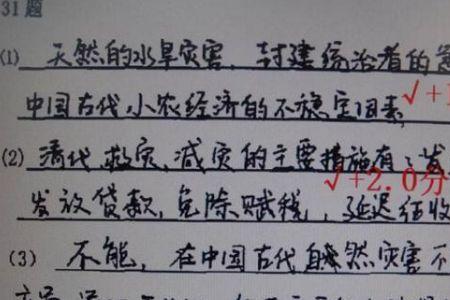 31题
(1) 天然的水旱灾害,封建统治者的
中国古代小农经济的不稳定因素 √+1
(2) 清代救灾、减灾的主要措施有:发
√+2.0分
发放贷款,免除赋税,延迟征收
(3) 不能,在中国古代自然灾害不